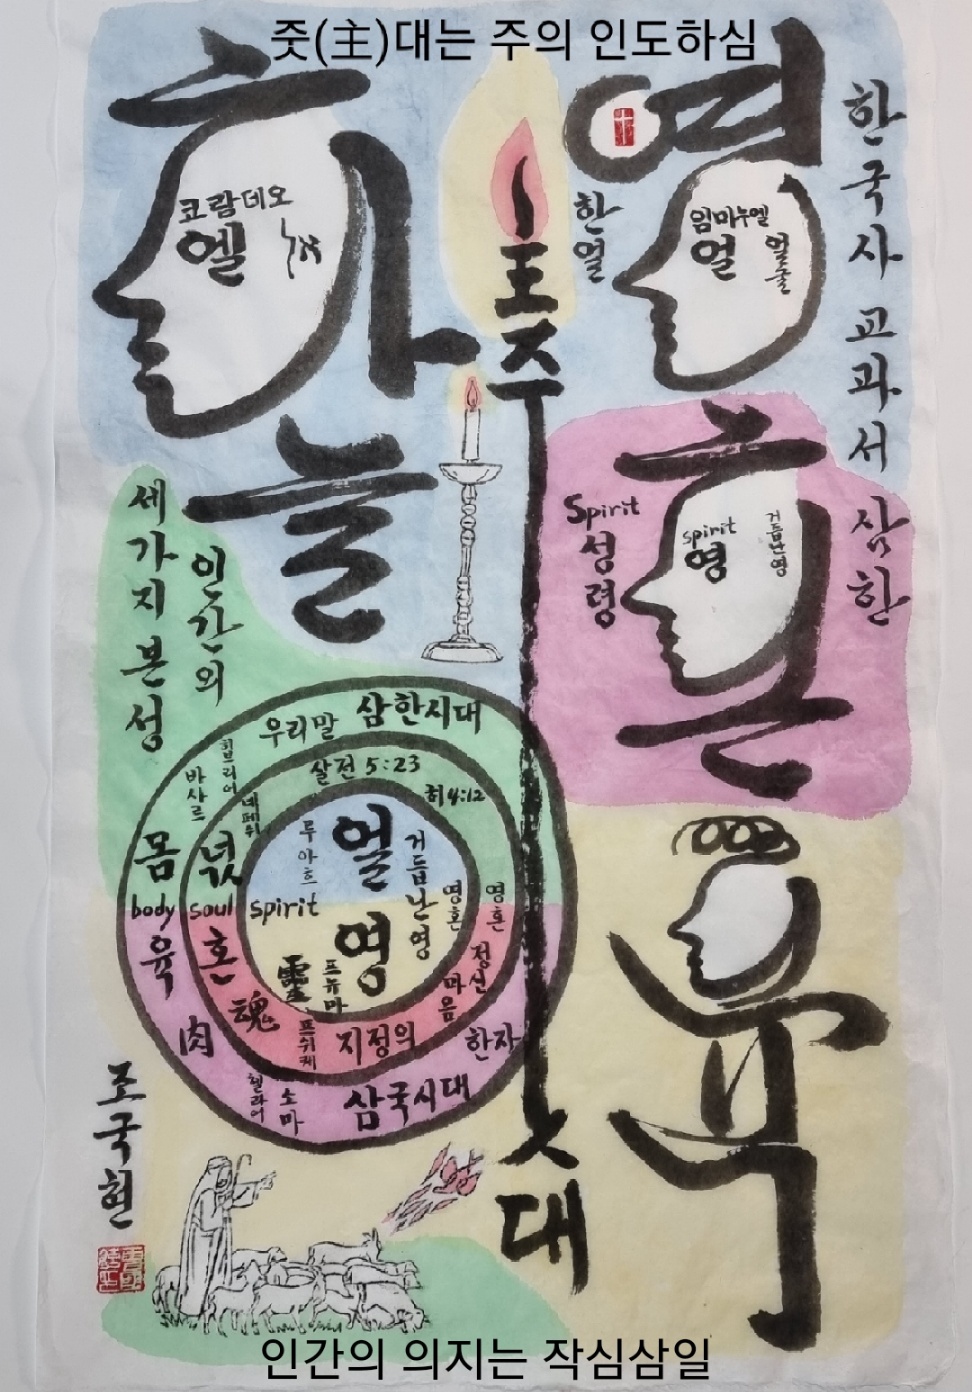 줏(主)대는 주의 인도하심
하늘
코람데오
엘
אל
主
주
ㅅ
대
한얼
영
임마누엘
얼
얼굴
한국사 교과서
삼한
혼
Spirit
성령
spirit
영
거듭난영
육
세가지본성
인간의
우리말 삼한시대
살전 5:23
히4:12
히브리어
바사르
네페쉬
루아흐
몸
넋
얼
거듭난영
body soul spirit
영혼
영혼
육
혼
영
정신
마음
靈
프뉴마
魂
肉
프쉬케
지정의
한자
헬라어
소마
삼국시대
조국현
인간의 의지는 작심삼일